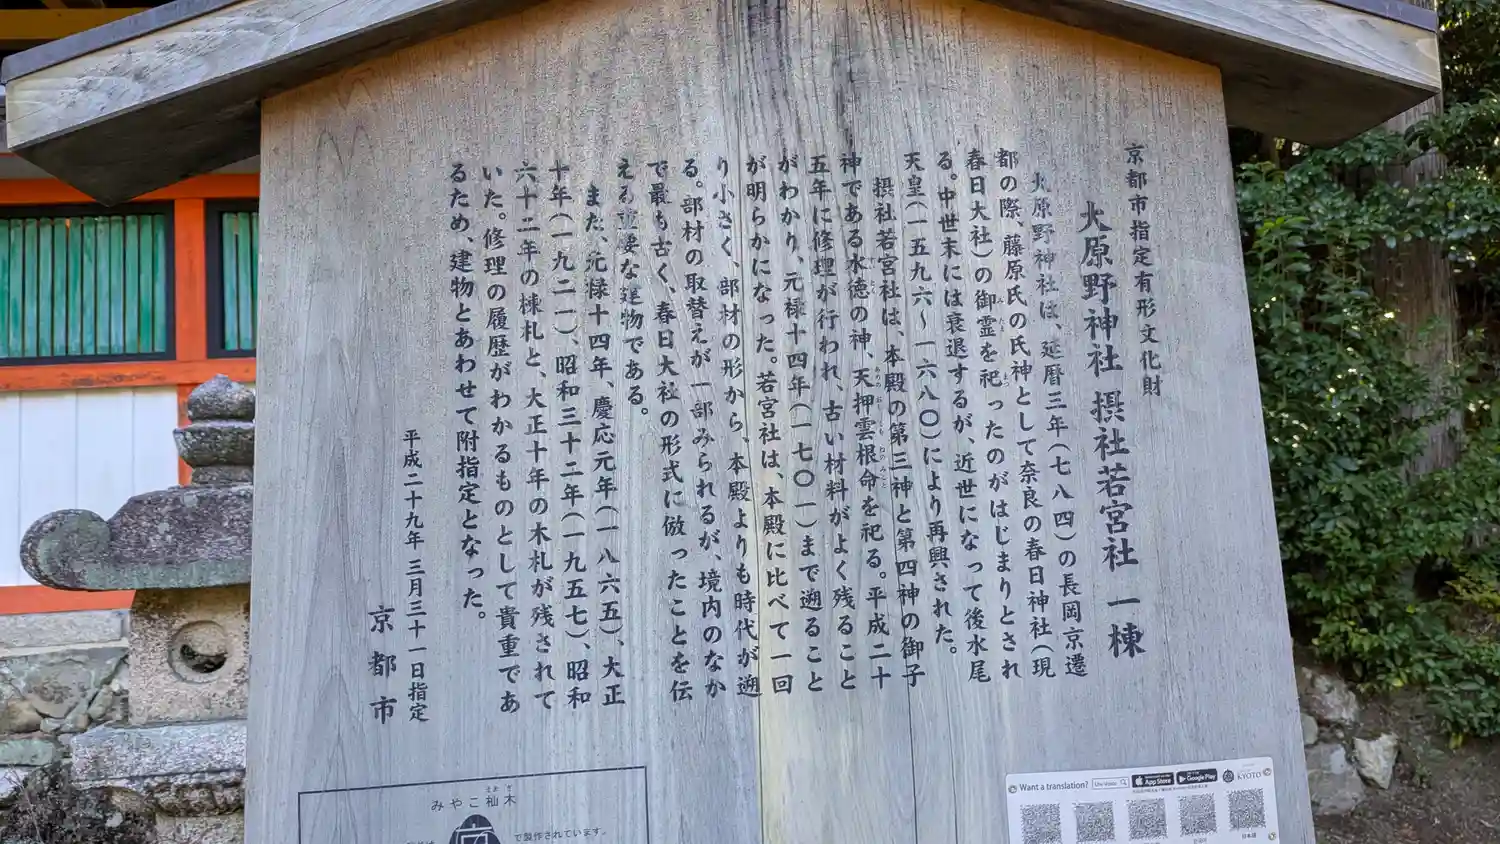 京都市指定有形文化財
大原野神社 摂社若宮社 一棟
大原野神社は、延暦三年(七八四)の長岡京遷
都の際、藤原氏の氏神として奈良の春日神社(現
春日大社)の御霊を祀ったのがはじまりとされ
る。中世末には衰退するが、近世になって後水尾
天皇(一五九六〜一六八〇)により再興された。
摂社若宮社は、本殿の第三神と第四神の御子
神である水徳の神、天押雲根命を祀る。平成二十
五年に修理が行われ、古い材料がよく残ること
がわかり、元禄十四年(一七〇一)まで遡ること
が明らかになった。若宮社は、本殿に比べて一回
り小さく、部材の形から、本殿よりも時代が遡
る。部材の取替えが一部みられるが、境内のなか
で最も古く、春日大社の形式に倣ったことを伝
える重要な建物である。
また、元禄十四年、慶応元年(一八六五)、大正
十年(一九二一)、昭和三十二年(一九五七)、昭和
六十二年の棟札と、大正十年の木札が残されて
いた。修理の履歴がわかるものとして貴重であ
るため、建物とあわせて附指定となった。
平成二十九年三月三十一日指定
京都市
みやこ杣木
で製作されています。
Want a translation?
App Store
Google Play
KYOTO
日本語